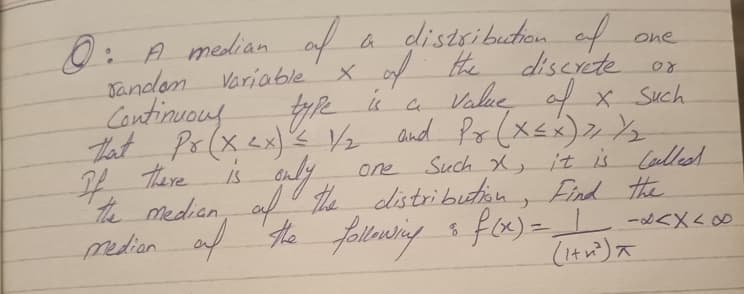 Q: A median of a distribution of one
random variable X of the discrete or
Continuous type is a value of x Such
that Pr(X<x) ≤ 1/2 and Pr(X≤x) ≥ 1/2
If there is only one Such x, it is Called
the median of the distribution, Find the
median of the following : f(x) = 1/((1+x²)π) -∞<x<∞